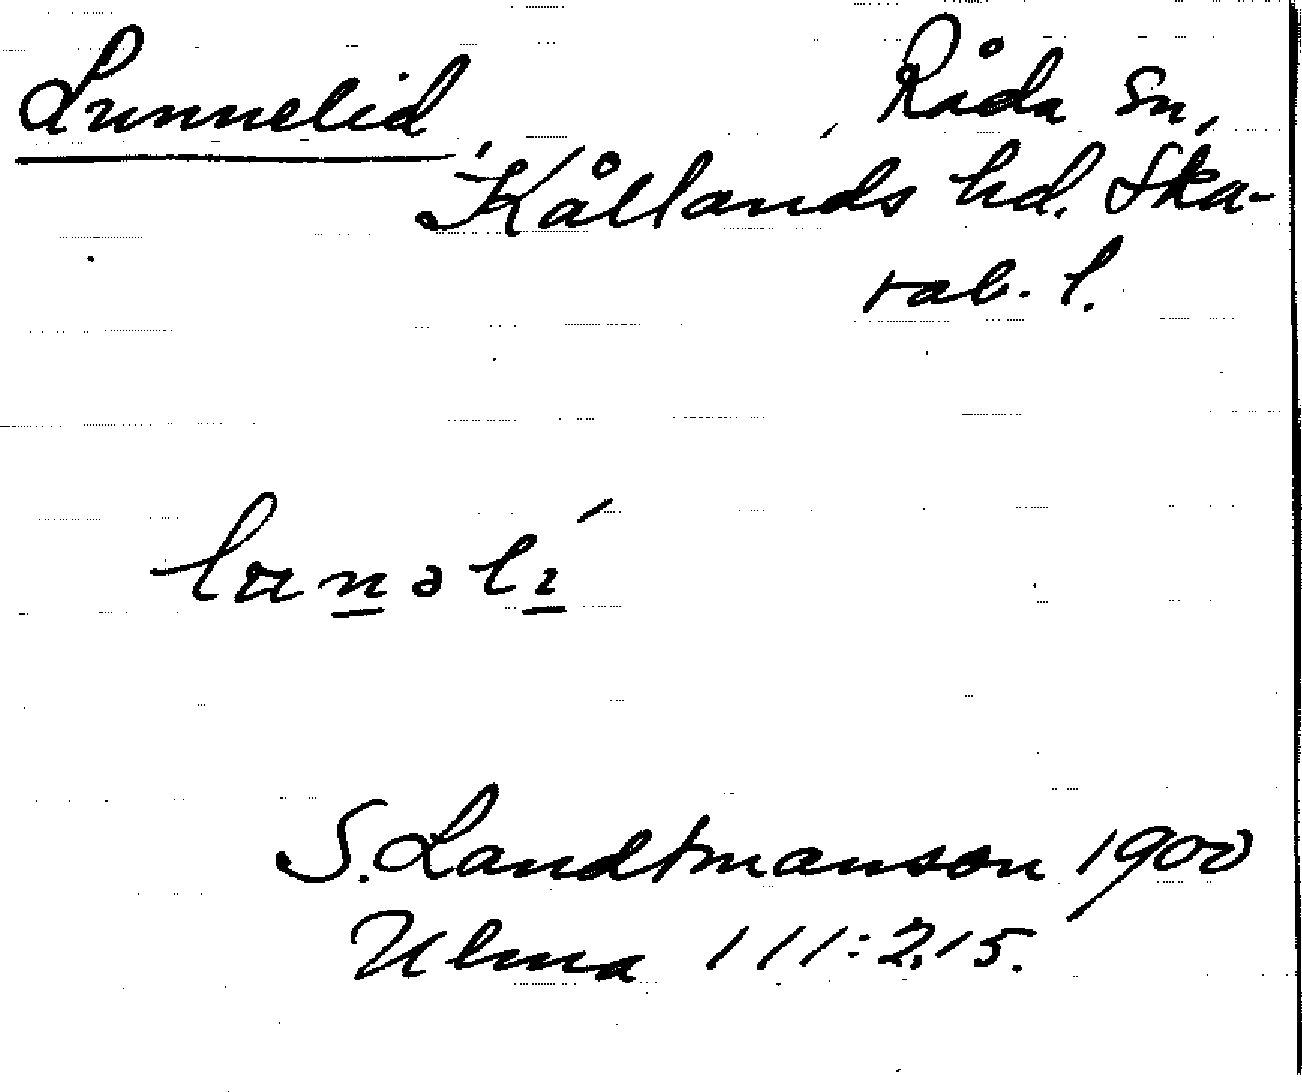 Lunnelid, Råda sn,
Kållands hd. Ska-
rab. l.
lunəlí
S. Landtmanson 1900
Ulma 111:215.